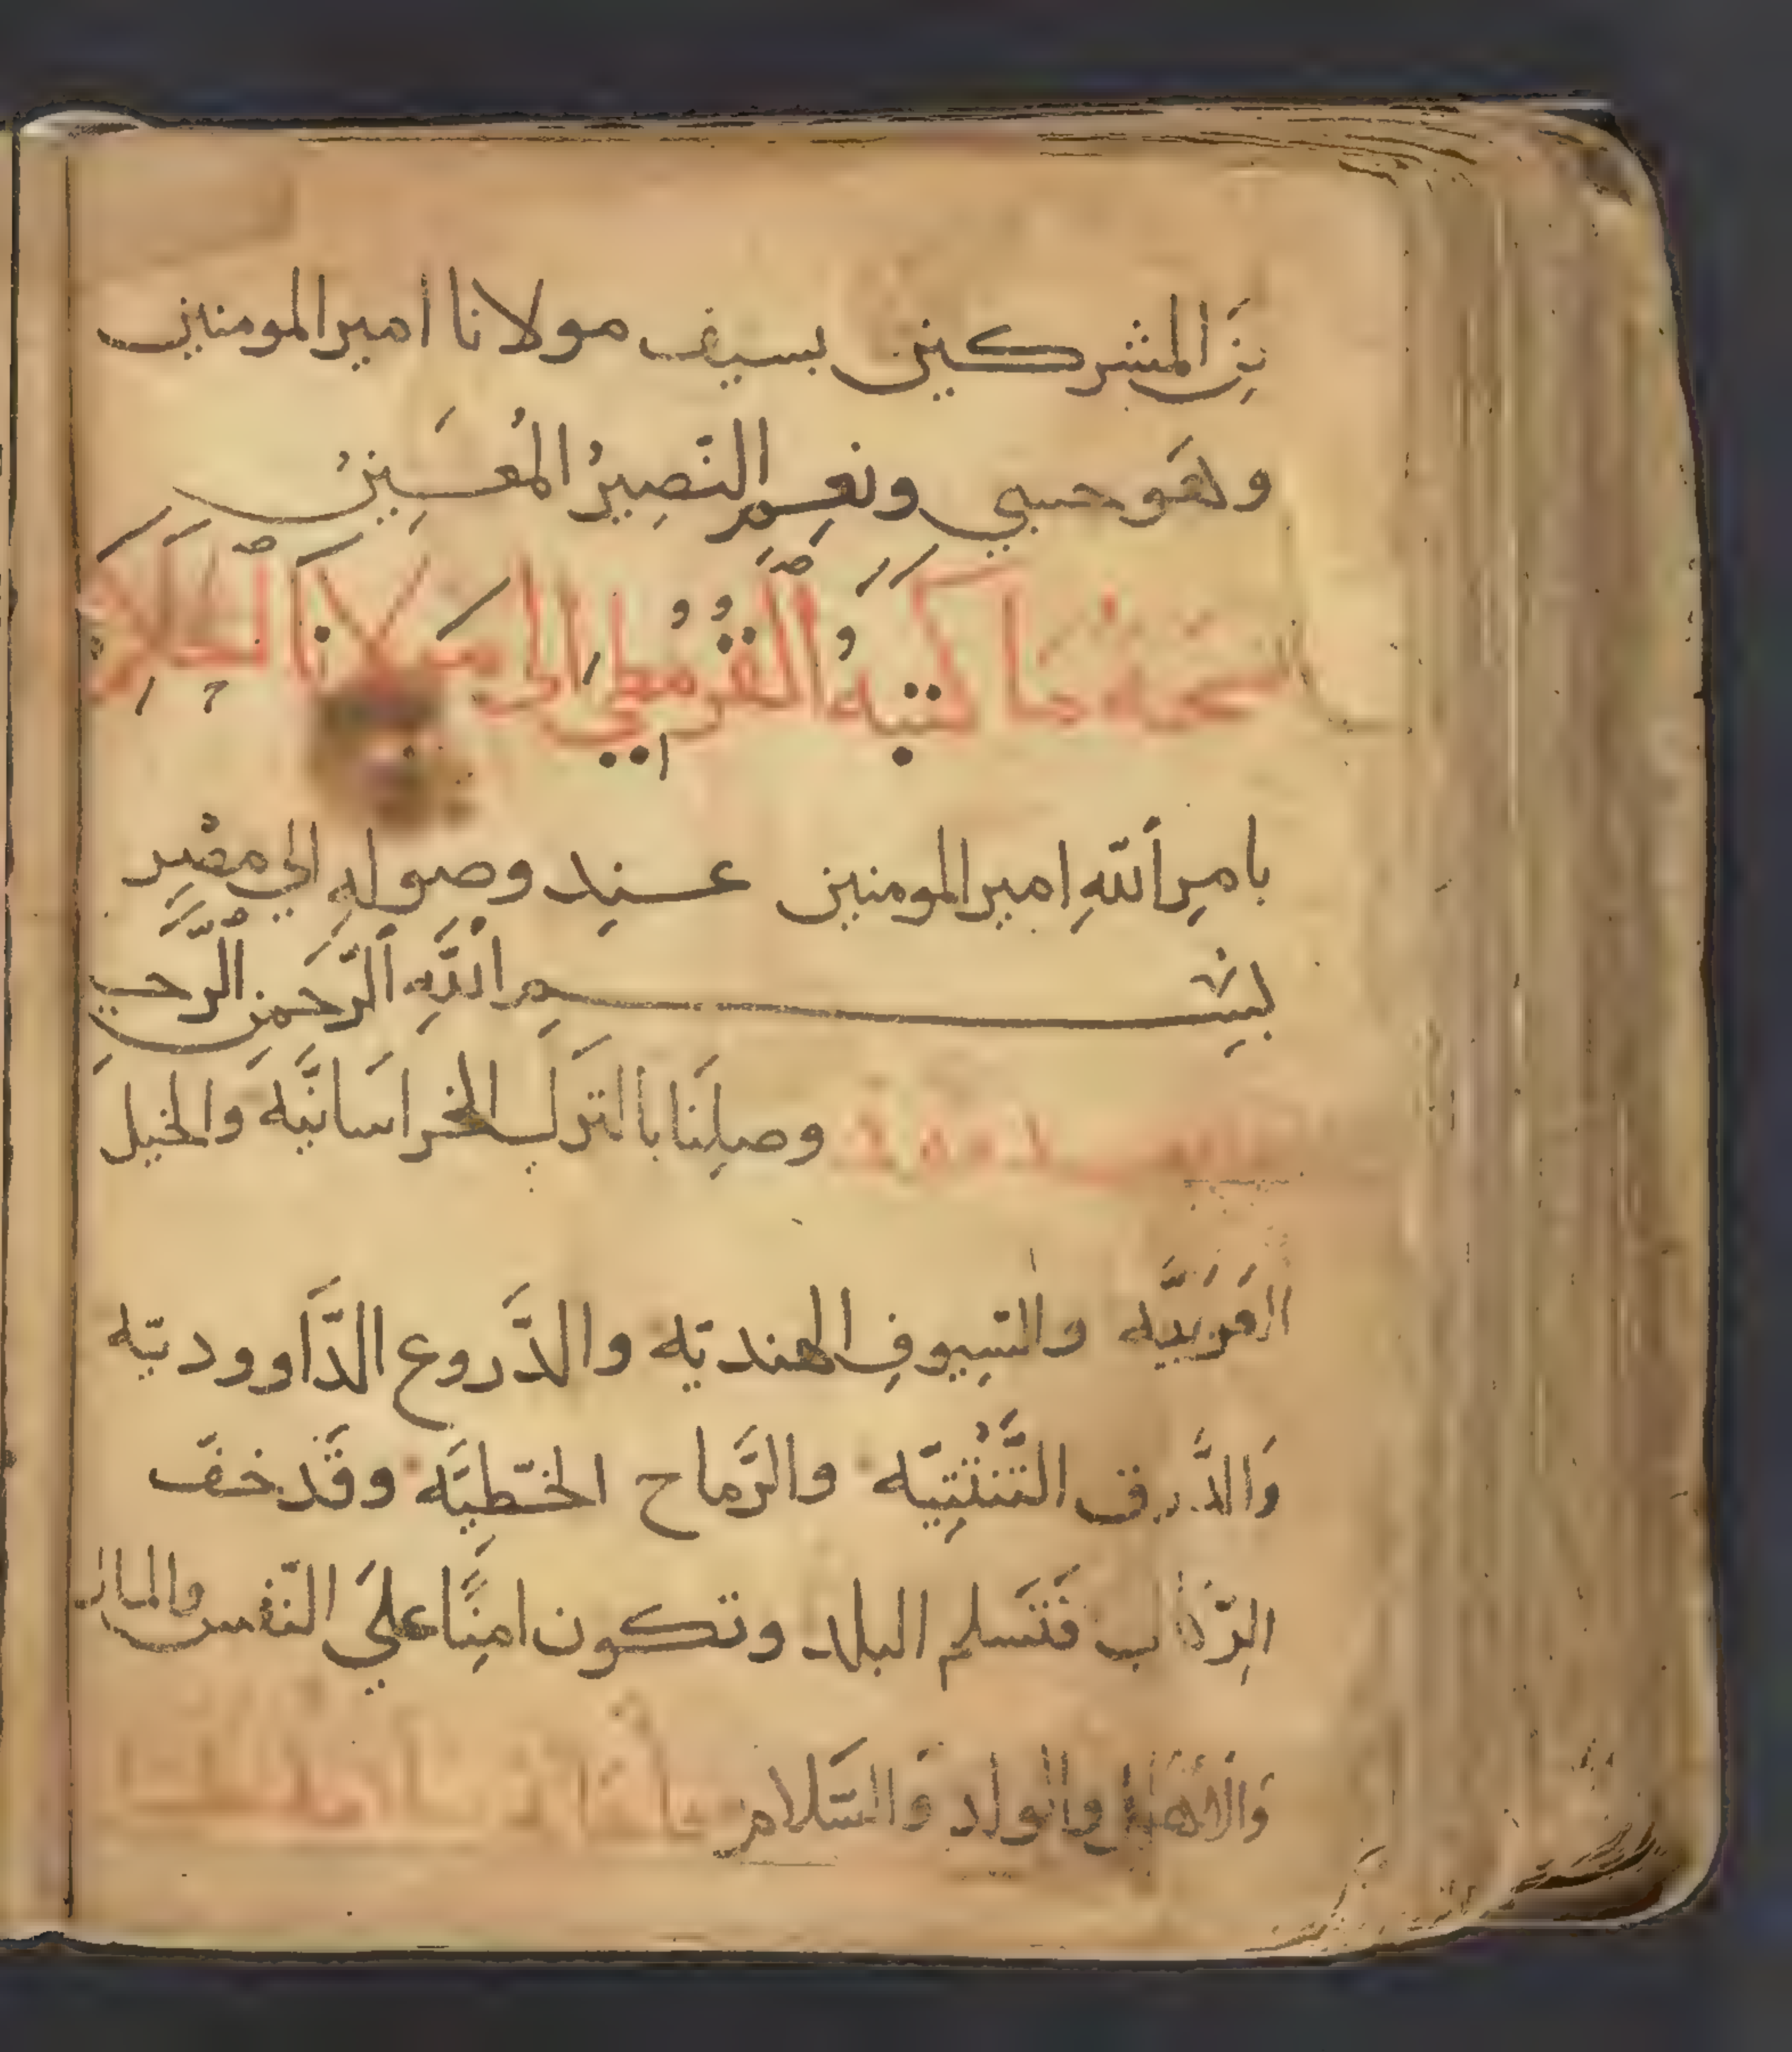 نِنَ المشركين بسيف مولانا امير المومنين
وهَو حسبي ونعِم النَصِيرُ المُعَيِنُ
نسخة مَا كَتبهُ القُرمُطِي الى مَولانَا الحَاكِم
بامرِ أللهِ امير المومنين عند وصولهِ الي مصْرِ
بسْم اللَّهِ الرَّحَمنِ الرَّحيم
وصلِنَا بالترَك الخراسَانيَّه والخيل
العَرَبيَّه والسِيوفِ الهنديّه والدَّروع الدَّاووديّه
وَالدَّرق التَّبْتِيّه والرَّماح الخطّيَّه وقَد خفَّ
الرِّكاب فَتَسلم البلد وتكون امِنًا علَي النّفس والمال
وَالاهل والولد وَالسَّلام